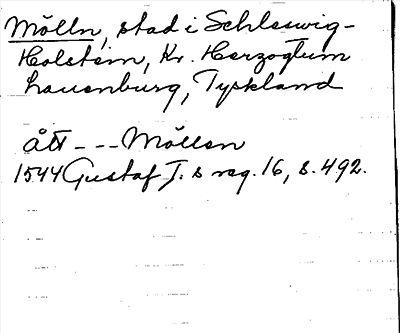 Mölln, stad i Schleswig-
Holstein, Kr. Herzogtum
Lauenburg, Tyskland
ått --- Möllen
1544 Gustaf I.s reg. 16, s. 492.